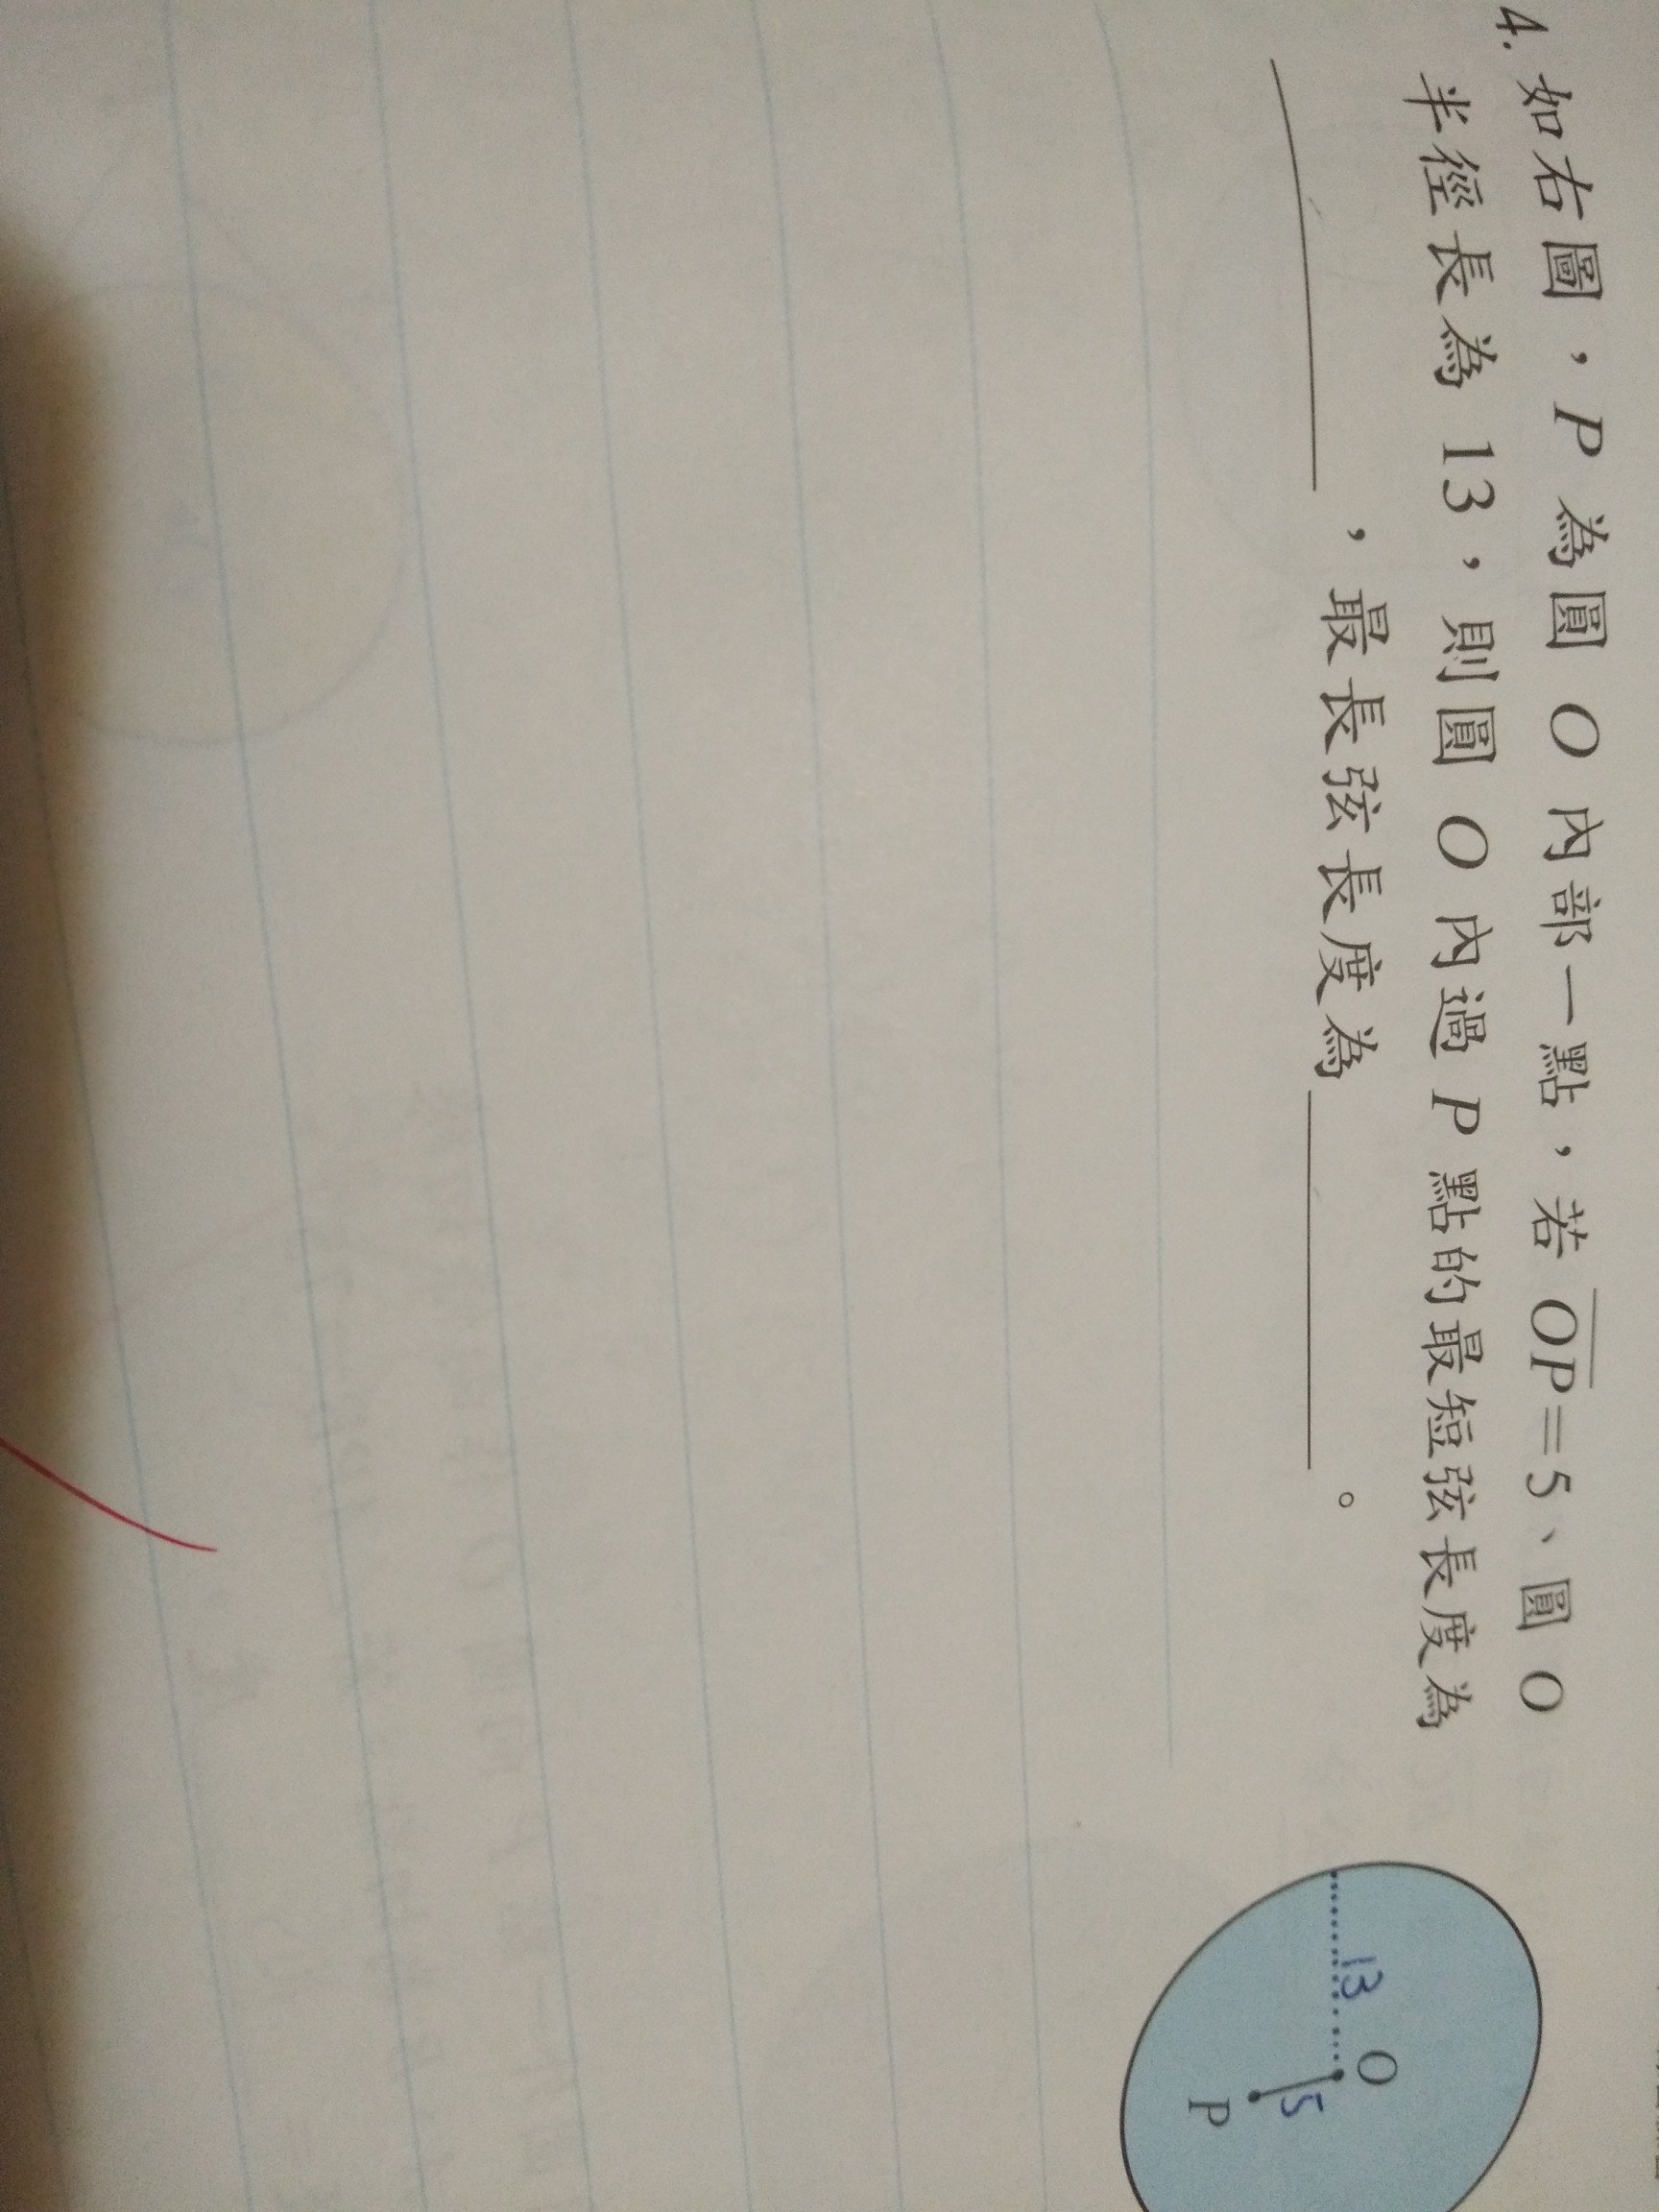 4. 如右圖，P 為圓 O 內部一點，若 OP=5、圓 O
半徑長為 13，則圓 O 內過 P 點的最短弦長度為
，最長弦長度為 。
13
O
5
P